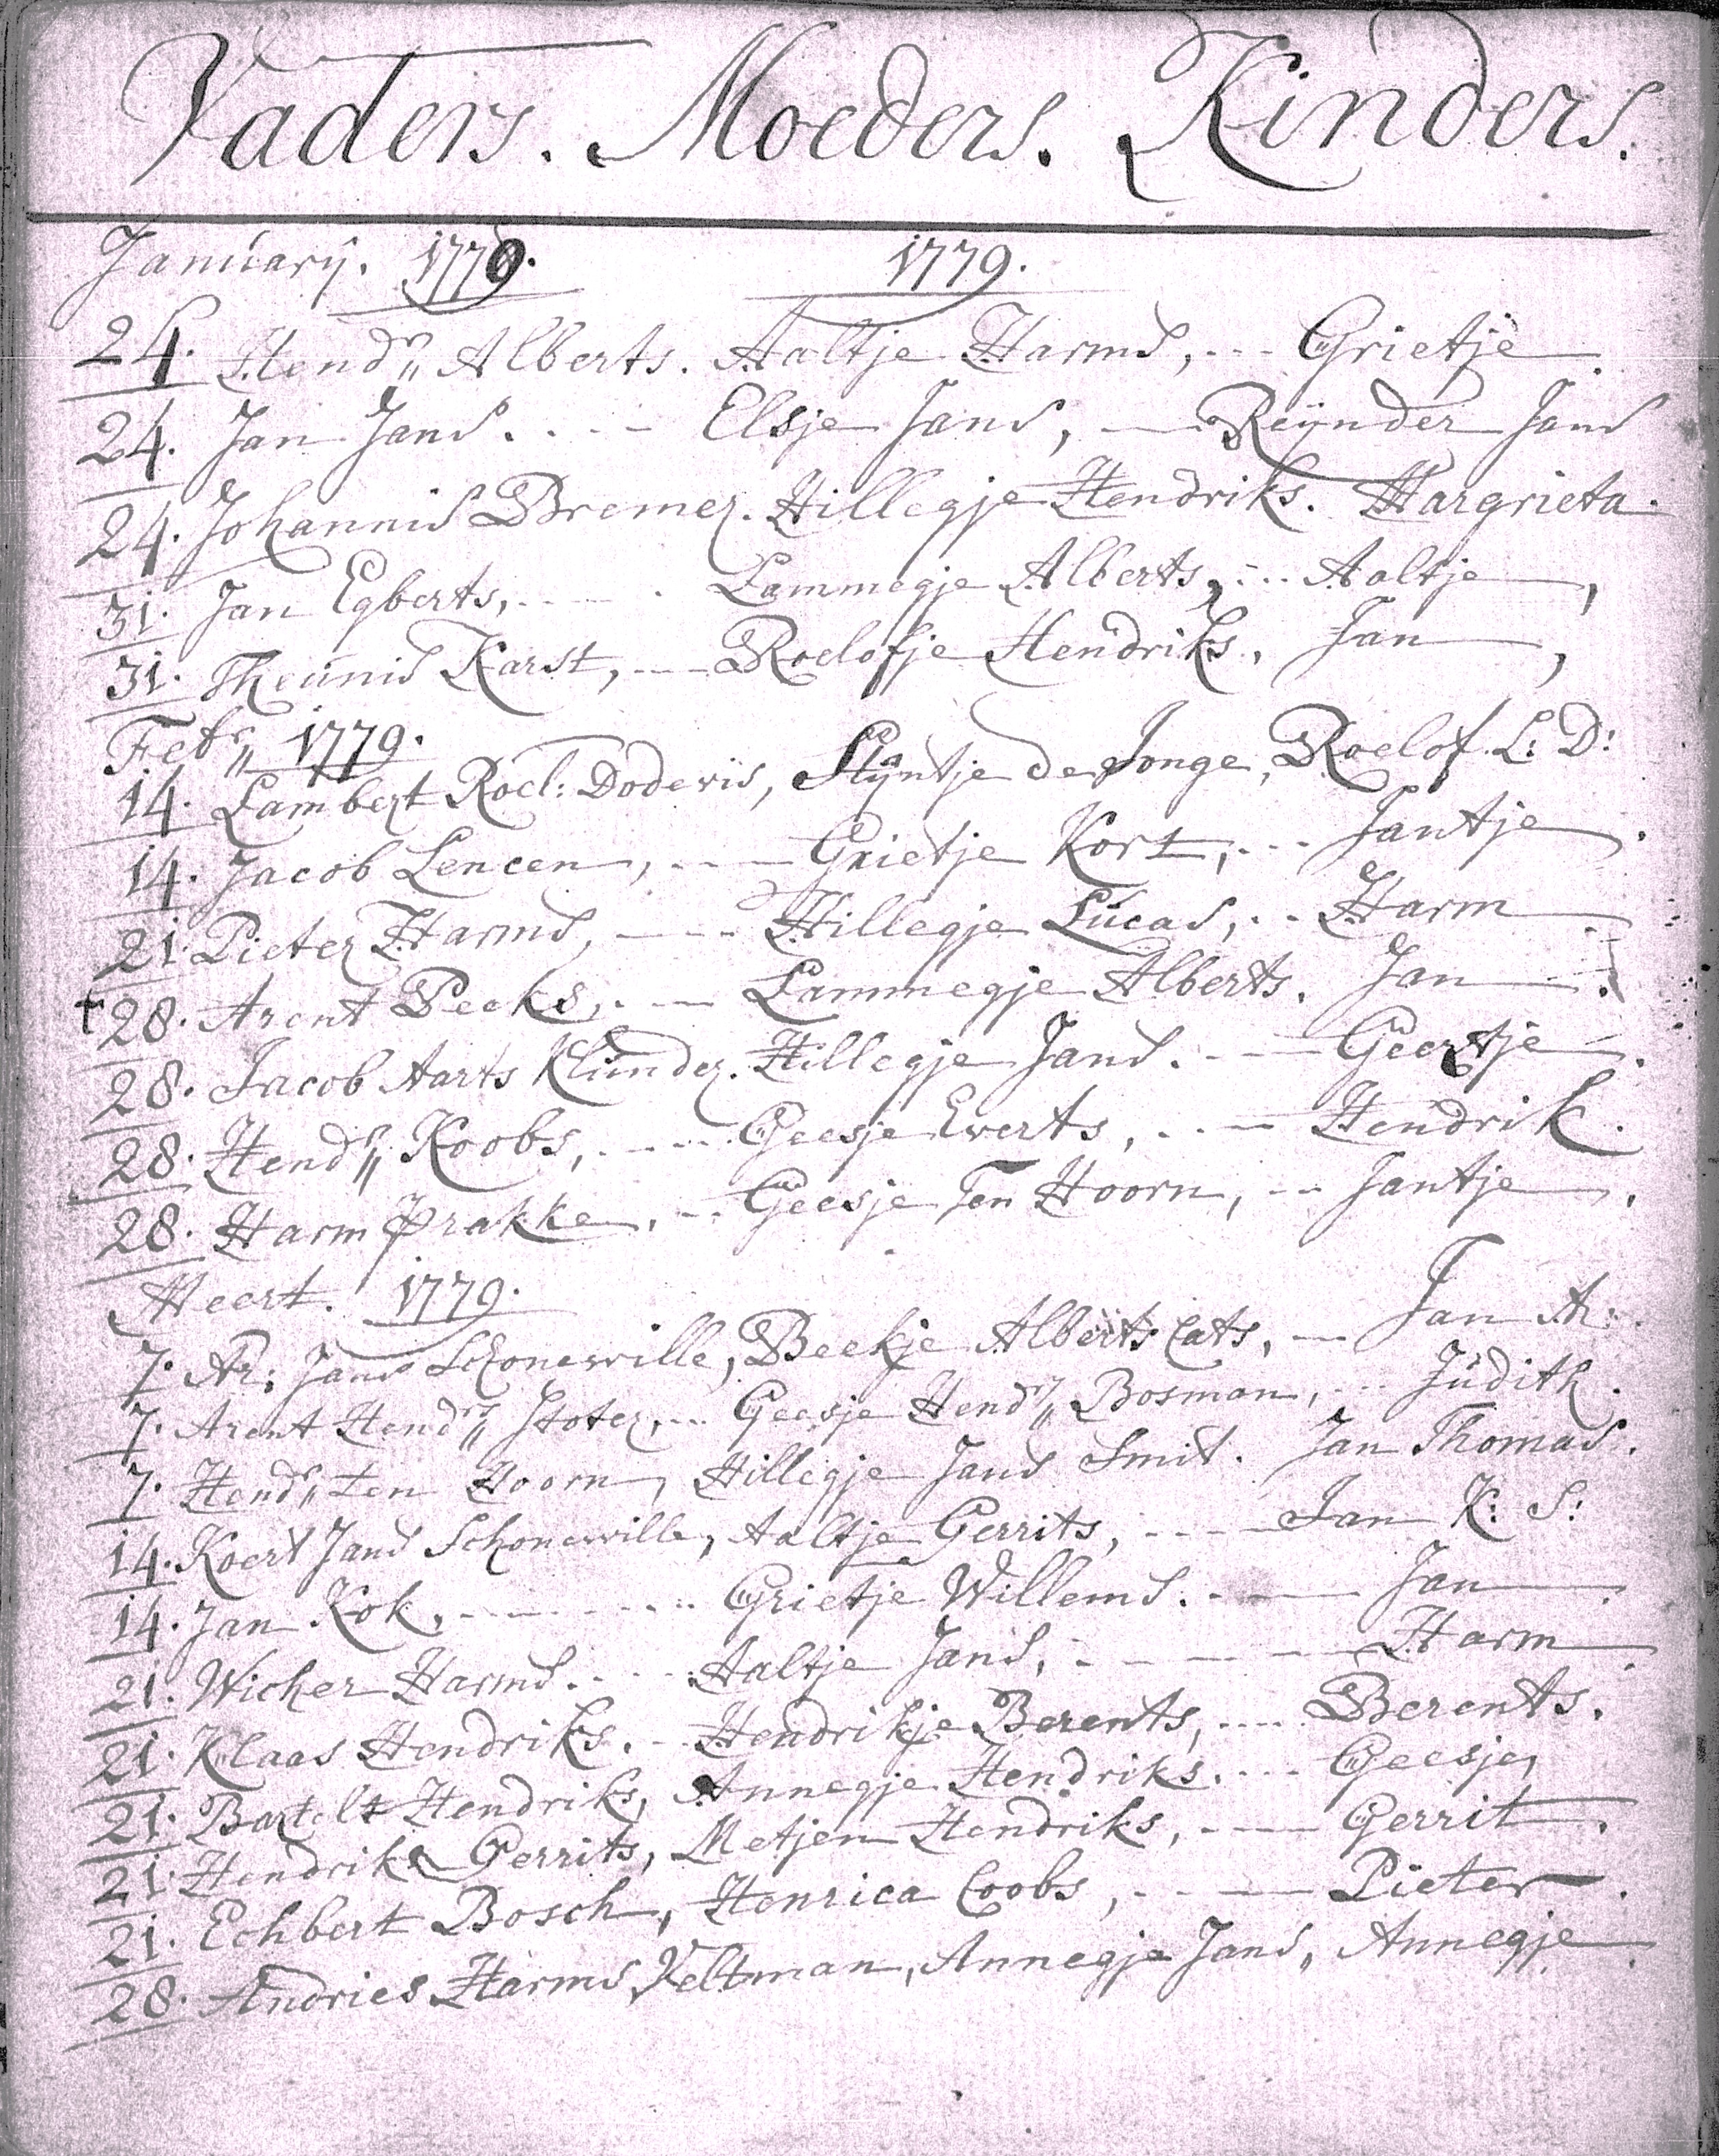 Vaders. Moeders. Kinders.
Januarÿ. 1779. 1779.
24. Hendr„ Alberts. Aaltje Harms, --- Grietje.
24. Jan Jans. --- Elsje Jans, — Reÿnder Jans
24. Johannis Bremer. Hillegje Hendriks. Margrieta.
31. Jan Egberts, --- Lammegje Alberts, --- Aaltje,
31. Theunis Karst, --- Roelofje Hendriks, Jan,
Febr„ 1779.
14. Lambert Roel: Dodewis, Stÿntje de Jonge, Roelof L: D:
14. Jacob Lencen, --- Grietje Kort, --- Jantje.
21. Pieter Harms, --- Hillegje Lucas, -- Harm.
+ 28. Arent Peeks, -- Lammegje Alberts. Jan.
28. Jacob Aarts Klunder. Hillegje Jans. --- Geertje.
28. Hendr„ Koobs, --- Geesje Everts, --- Hendrik.
28. Harm Prakke, -- Geesje Ten Hoorn, -- Jantje.
Meert. 1779.
7. Ar: Jans Schonewille, Beekje Alberts Cats, — Jan Ar:
7. Arent Hendr„ Stoter, -- Geesje Hendr„ Bosman, --- Judith.
7. Hendr„ ten Hoorn, Hillegje Jans Smit. Jan Thomas.
14. Koert Jans Schonewille, Aaltje Gerrits, --- Jan K: S:
14. Jan Kok, --- Grietje Willems. --- Jan.
21. Wicher Harms. --- Aaltje Jans, --- Harm.
21. Klaas Hendriks. - Hendrikje Berents, --- Berents.
21. Bartelt Hendriks, Annegje Hendriks. --- Geesje,
21. Hendrik Gerrits, Metjen Hendriks, --- Gerrit.
21. Echbert Bosch, Henrica Coobs, --- Pieter.
28. Andries Harms Veltman, Annegje Jans, Annegje.